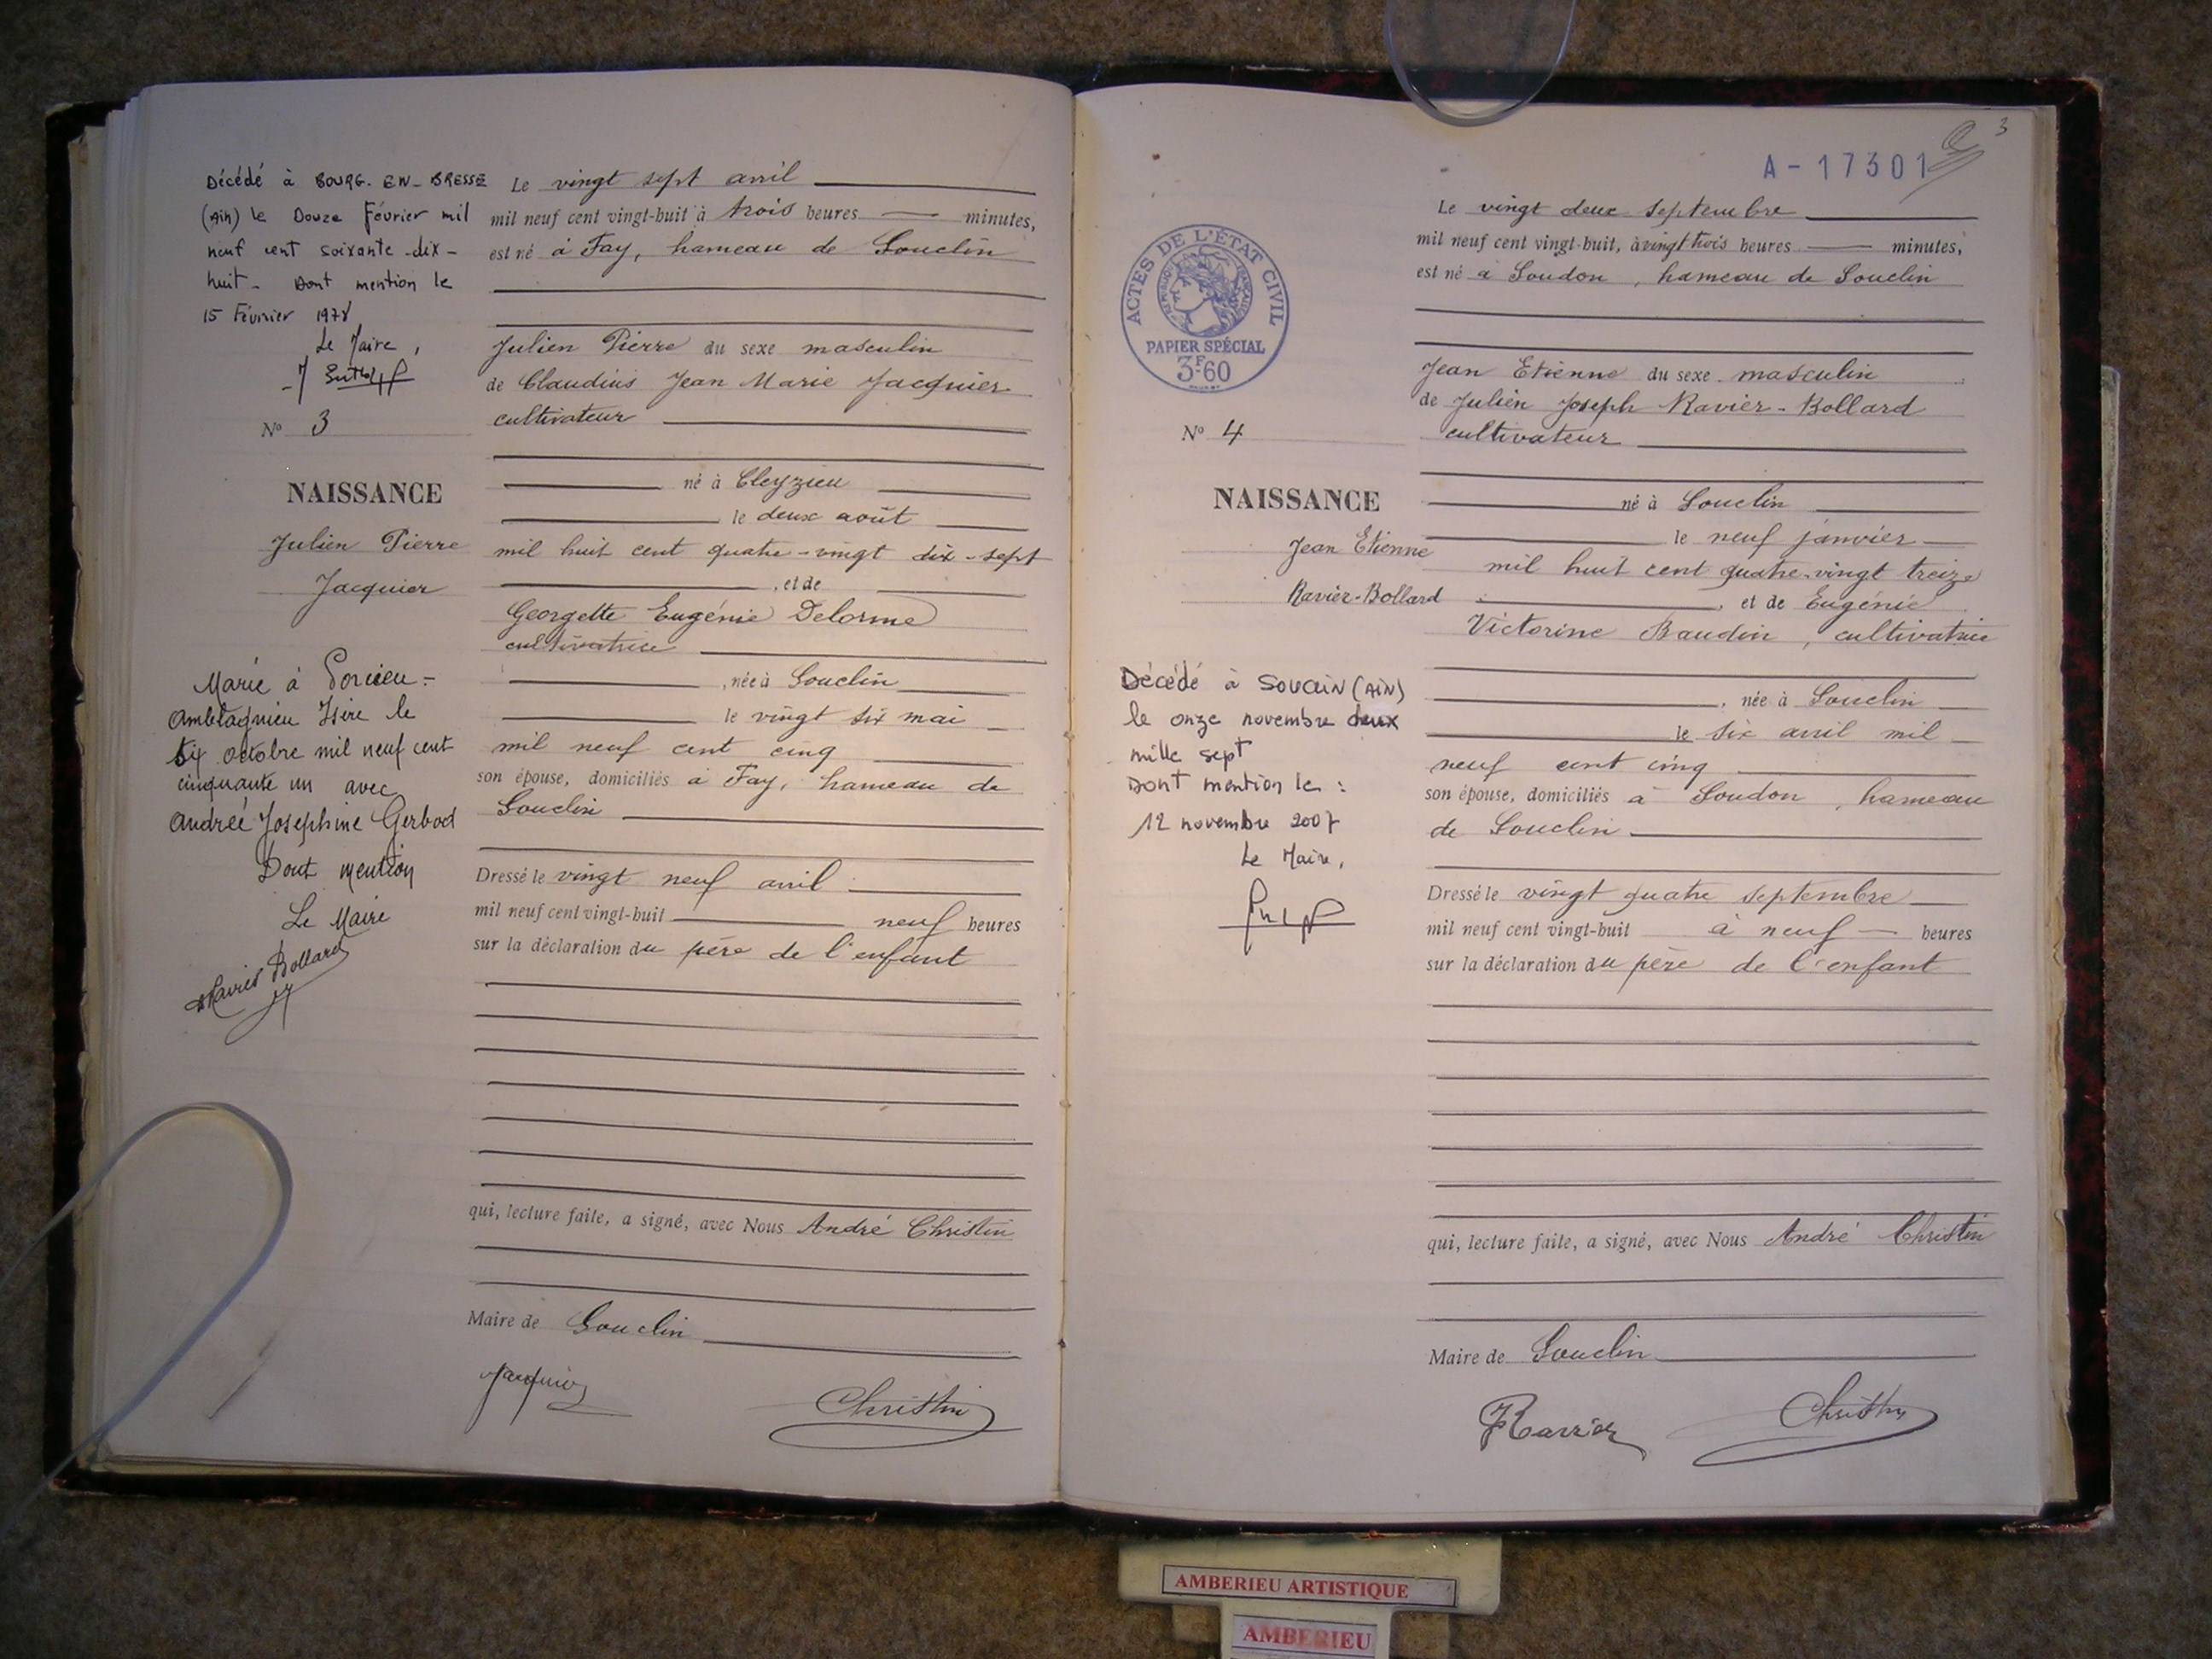 Décédé à BOURG-EN-BRESSE
(Ain) le Douze Février mil
neuf cent soixante-dix-
huit. Dont mention le
15 Février 1978
Le Maire,
N° 3
NAISSANCE
Julien Pierre
Jacquier
Marié à Porcieu-
Amblagnieu Isère le
six octobre mil neuf cent
cinquante un avec
Andrée Josephine Gerbod
Dont mention
Le Maire
Ravier Bollard
Le vingt sept avril
mil neuf cent vingt-huit à trois heures minutes,
est né à Fay, hameau de Souclin
Julien Pierre du sexe masculin
de Claudius Jean Marie Jacquier
cultivateur
né à Cleyzieu
le deux août
mil huit cent quatre-vingt dix-sept
, et de
Georgette Eugénie Delorme
cultivatrice
, née à Souclin
le vingt six mai
mil neuf cent cinq
son épouse, domiciliés à Fay, hameau de
Souclin
Dressé le vingt neuf avril
mil neuf cent vingt-huit neuf heures
sur la déclaration du père de l'enfant
qui, lecture faite, a signé, avec Nous André Christin
Maire de Souclin
Jacquier Christin
3
A-17301
ACTES DE L'ÉTAT CIVIL
PAPIER SPÉCIAL
3F60
N° 4
NAISSANCE
Jean Etienne
Ravier-Bollard
Décédé à SOUCLIN (AIN)
le onze novembre deux
mille sept
Dont mention le :
12 novembre 2007
Le Maire,
Le vingt deux septembre
mil neuf cent vingt-huit, à vingt trois heures minutes,
est né à Soudon, hameau de Souclin
Jean Etienne du sexe masculin
de Julien Joseph Ravier-Bollard
cultivateur
né à Souclin
le neuf janvier
mil huit cent quatre-vingt treize
, et de Eugénie
Victorine Baudin, cultivatrice
, née à Souclin
le six avril mil
neuf cent cinq
son épouse, domiciliés à Soudon, hameau
de Souclin
Dressé le vingt quatre septembre
mil neuf cent vingt-huit à neuf heures
sur la déclaration du père de l'enfant
qui, lecture faite, a signé, avec Nous André Christin
Maire de Souclin
JRavier Christin
AMBERIEU ARTISTIQUE
AMBERIEU